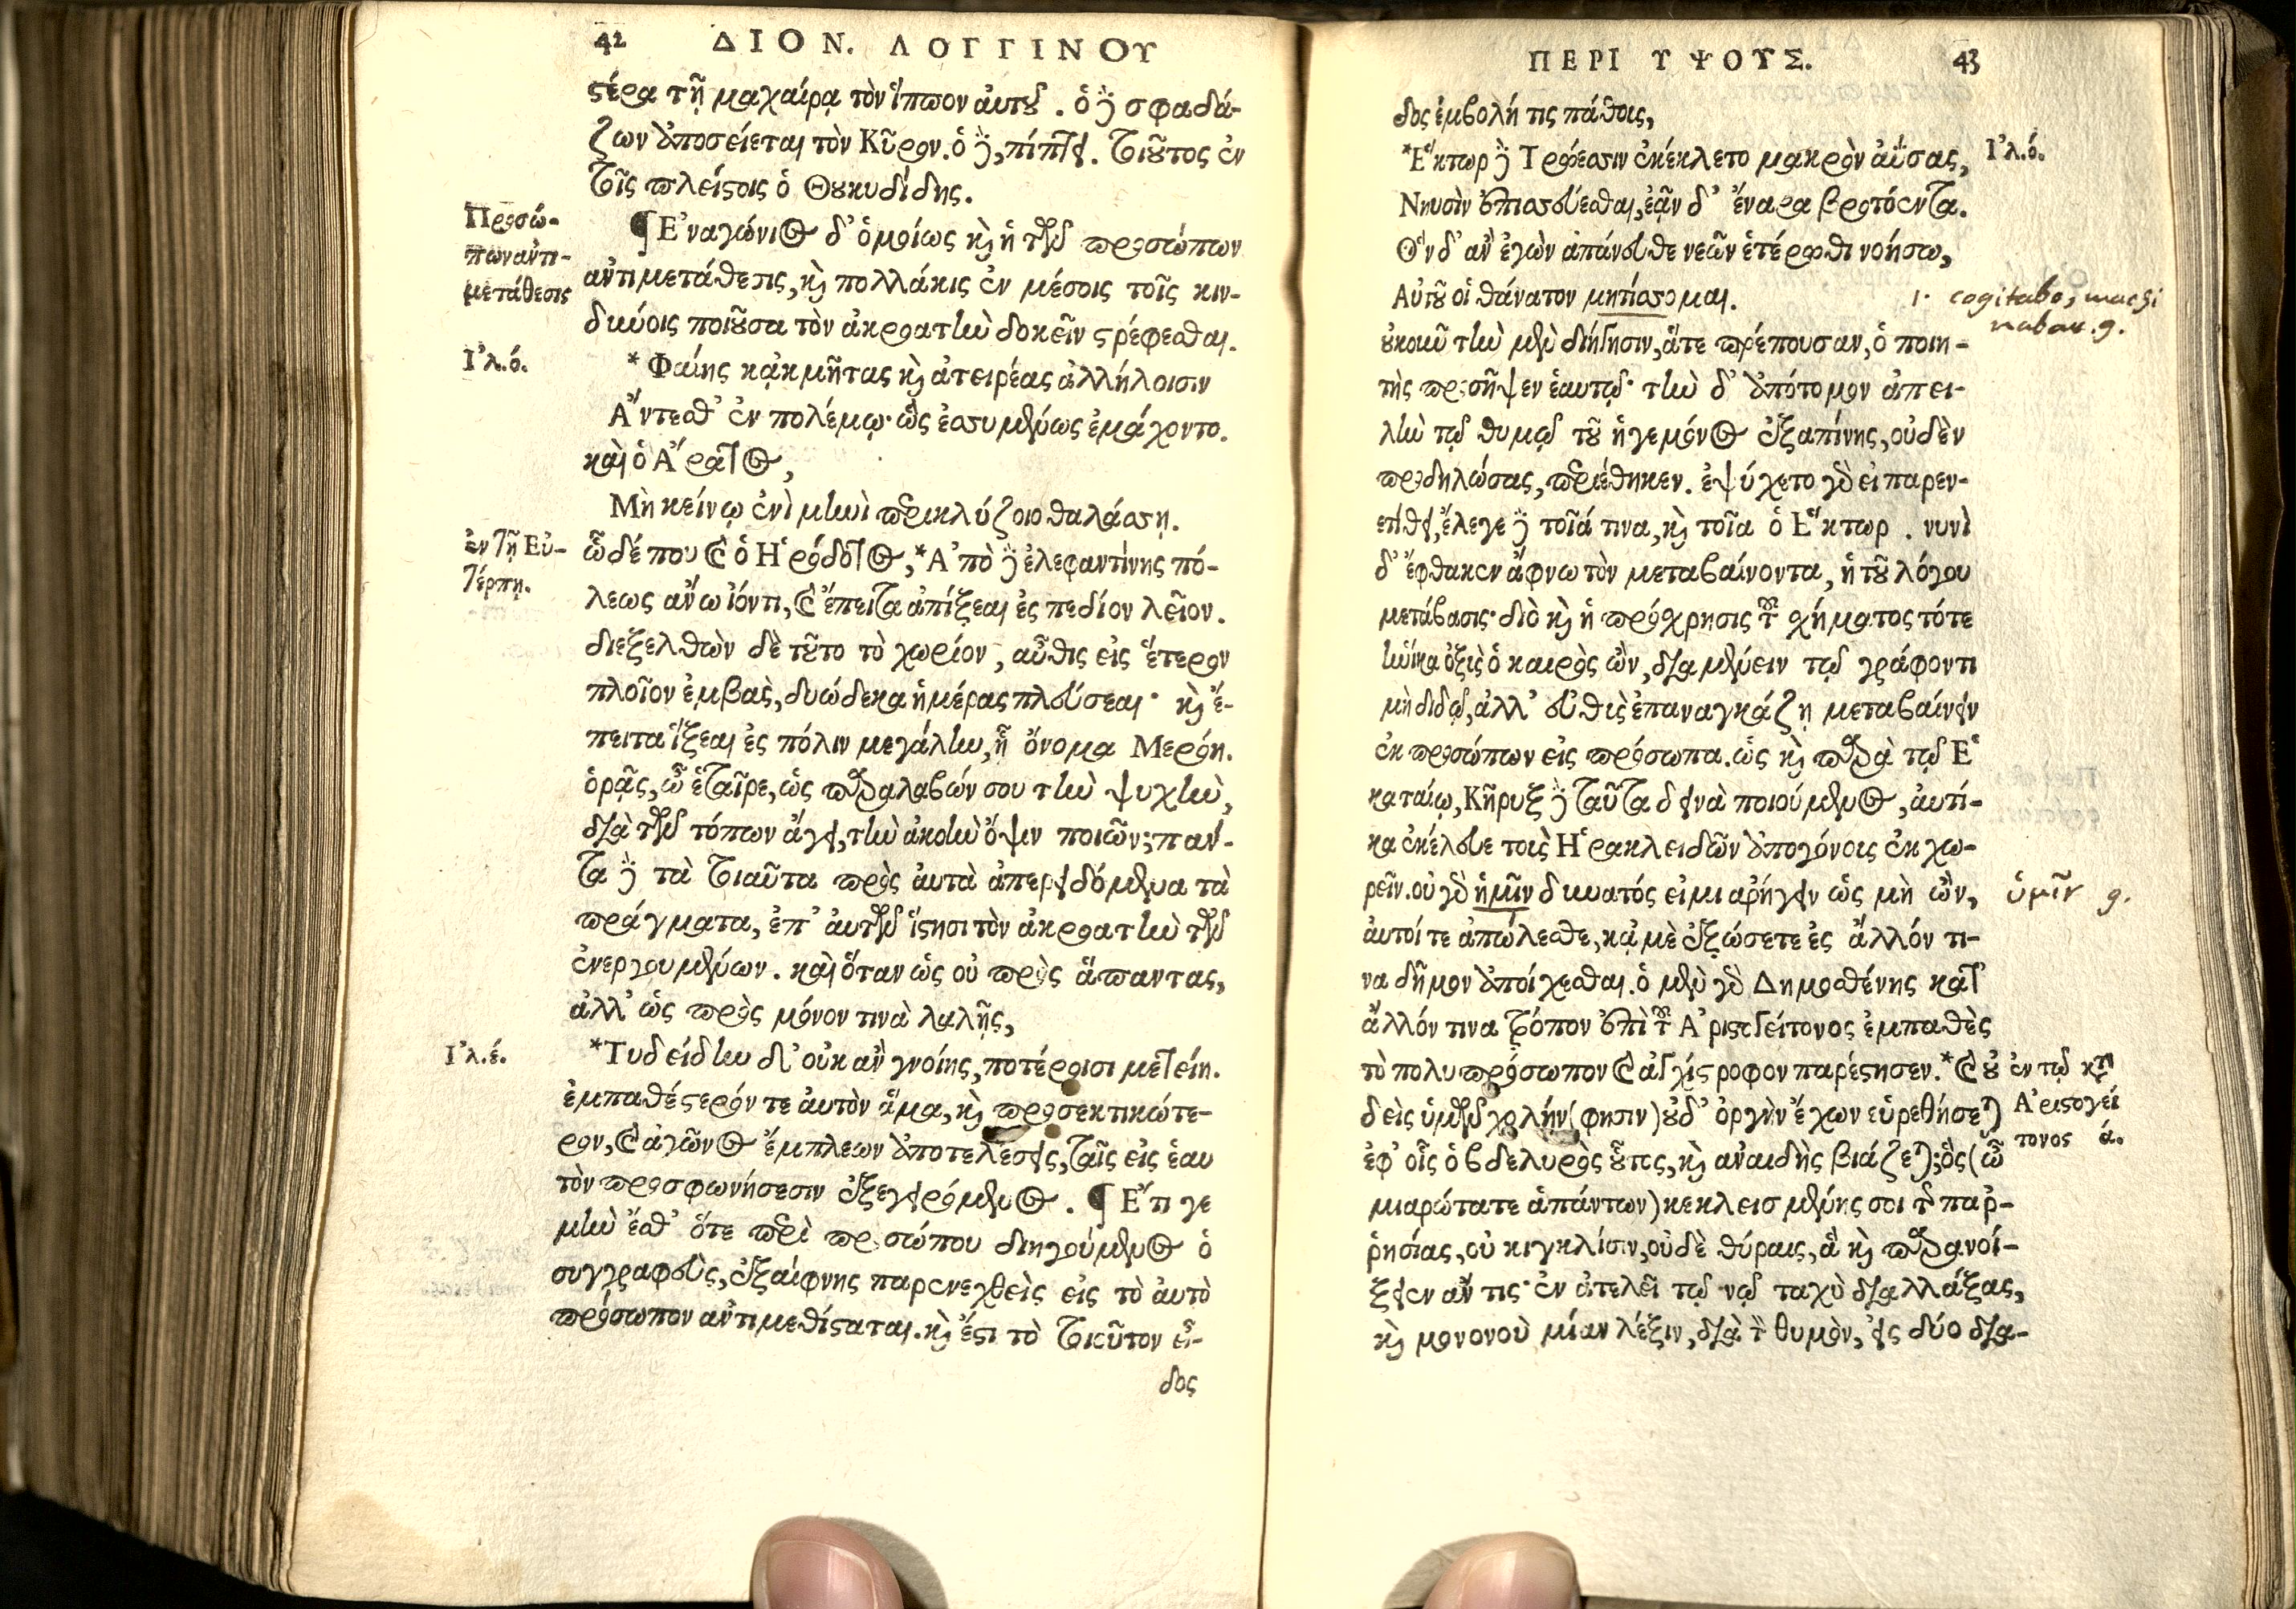 42 ΔΙΟΝ. ΛΟΓΓΙΝΟΥ
στέρα τῇ μαχαίρᾳ τὸν ἵππον αὐτοῦ. ὁ δὲ σφαδά-
ζων ἀποσείεται τὸν Κῦρον. ὁ δὲ, πίπτει. τοιοῦτος ἐν
τοῖς πλείστοις ὁ Θουκυδίδης.
Προσώ-
πων ἀντι-
μετάθεσις
¶ Ἐναγώνιος δ' ὁμοίως καὶ ἡ τῶν προσώπων
ἀντιμετάθεσις, καὶ πολλάκις ἐν μέσοις τοῖς κιν-
δύνοις ποιοῦσα τὸν ἀκροατὴν δοκεῖν στρέφεσθαι.
Ἰλ.ό.
*Φαίης κἀκμῆτας καὶ ἀτειρέας ἀλλήλοισιν
Ἄντεσθ' ἐν πολέμῳ· ὣς ἐσσυμένως ἐμάχοντο.
καὶ ὁ Ἄρατος,
Μὴ κείνῳ ἐνὶ μηνὶ περικλύζοιο θαλάσσῃ.
ἐν τῇ Εὐ-
τέρπῃ.
ὧδέ που καὶ ὁ Ἡρόδοτος, *Ἀπὸ δὲ ἐλεφαντίνης πό-
λεως ἄνω ἰόντι, καὶ ἔπειτα ἀπίξεαι ἐς πεδίον λεῖον.
διεξελθὼν δὲ τοῦτο τὸ χωρίον, αὖθις εἰς ἕτερον
πλοῖον ἐμβὰς, δυώδεκα ἡμέρας πλεύσεαι· καὶ ἔ-
πειτα ἵξεαι ἐς πόλιν μεγάλην, ᾗ ὄνομα Μερόη.
ὁρᾷς, ὦ ἑταῖρε, ὡς παραλαβών σου τὴν ψυχὴν,
διὰ τῶν τόπων ἄγει, τὴν ἀκοὴν ὄψιν ποιῶν; πάν-
τα δὲ τὰ τοιαῦτα πρὸς αὐτὰ ἀπερειδόμενα τὰ
πράγματα, ἐπ' αὐτῶν ἵστησι τὸν ἀκροατὴν τῶν
ἐνεργουμένων. καὶ ὅταν ὡς οὐ πρὸς ἅπαντας,
ἀλλ' ὡς πρὸς μόνον τινὰ λαλῇς,
Ἰλ.έ.
*Τυδείδην δ' οὐκ ἂν γνοίης, ποτέροισι μετείη.
ἐμπαθέστερόν τε αὐτὸν ἅμα, καὶ προσεκτικώτε-
ρον, καὶ ἀγῶνος ἔμπλεων ἀποτελέσεις, ταῖς εἰς ἑαυ
τὸν προσφωνήσεσιν ἐξεγειρόμενος. ¶ Ἔτι γε
μὴν ἔσθ' ὅτε περὶ προσώπου διηγούμενος ὁ
συγγραφεὺς, ἐξαίφνης παρενεχθεὶς εἰς τὸ αὐτὸ
πρόσωπον ἀντιμεθίσταται. καὶ ἔστι τὸ τοιοῦτον εἶ-
δος
ΠΕΡΙ ΥΨΟΥΣ. 43
δος ἐμβολή τις πάθοις,
*Ἕκτωρ δὲ Τρώεσσιν ἐκέκλετο μακρὸν ἀΰσας,
Ἰλ.ό.
Νηυσὶν ἐπισσεύεσθαι, ἐᾷν δ' ἔναρα βροτόεντα.
Ὃν δ' ἂν ἐγὼν ἀπάνευθε νεῶν ἑτέρωθι νοήσω,
Αὐτοῦ οἱ θάνατον μητίσσομαι.
1. cogitabo, machi
nabor. g.
οὐκοῦν τὴν μὲν διήγησιν, ἅτε πρέπουσαν, ὁ ποιη-
τὴς προσῆψεν ἑαυτῷ· τὴν δ' ἀπότομον ἀπει-
λὴν τῷ θυμῷ τοῦ ἡγεμόνος ἐξαπίνης, οὐδὲν
προδηλώσας, περιέθηκεν. ἐψύχετο γὰρ εἰ παρεν-
ετίθει, ἔλεγε δὲ τοῖά τινα, καὶ τοῖα ὁ Ἕκτωρ. νυνὶ
δ' ἔφθακεν ἄφνω τὸν μεταβαίνοντα, ἡ τοῦ λόγου
μετάβασις· διὸ καὶ ἡ πρόχρησις τοῦ σχήματος τότε
ἡνίκα ὀξὺς ὁ καιρὸς ὢν, διαμένειν τῷ γράφοντι
μὴ διδῷ, ἀλλ' εὐθὺς ἐπαναγκάζῃ μεταβαίνειν
ἐκ προσώπων εἰς πρόσωπα. ὡς καὶ παρὰ τῷ Ἑ
καταίῳ, Κῆρυξ δὲ ταῦτα δεινὰ ποιούμενος, αὐτί-
κα ἐκέλευε τοὺς Ἡρακλειδῶν ἀπογόνοις ἐκχω-
ρεῖν. οὐ γὰρ ἡμῖν δυνατός εἰμι ἀρήγειν ὡς μὴ ὢν,
ὑμῖν g.
αὐτοί τε ἀπώλεσθε, κἀμὲ ἐξώσετε ἐς ἄλλόν τι-
να δῆμον ἀποίχεσθαι. ὁ μὲν γὰρ Δημοσθένης κατ'
ἄλλόν τινα τρόπον ἐπὶ τοῦ Ἀριστογείτονος ἐμπαθὲς
τὸ πολυπρόσωπον καὶ ἀγχίστροφον παρέστησεν. *Καὶ οὐ
ἐν τῷ κτ
Ἀριστογεί
τονος ά.
δεὶς ὑμῶν χολήν (φησιν) οὐδ' ὀργὴν ἔχων εὑρεθήσεται
ἐφ' οἷς ὁ βδελυρὸς οὗτος, καὶ ἀναιδὴς βιάζεται; ὃς (ὦ
μιαρώτατε ἁπάντων) κεκλεισμένης σοι τῆς παρ-
ρησίας, οὐ κιγκλίσιν, οὐδὲ θύραις, ἃ καὶ παρανοί-
ξειεν ἄν τις· ἐν ἀτελεῖ τῷ νῷ ταχὺ διαλλάξας,
καὶ μονονοὺ μίαν λέξιν, διὰ τὸν θυμὸν, εἰς δύο δια-